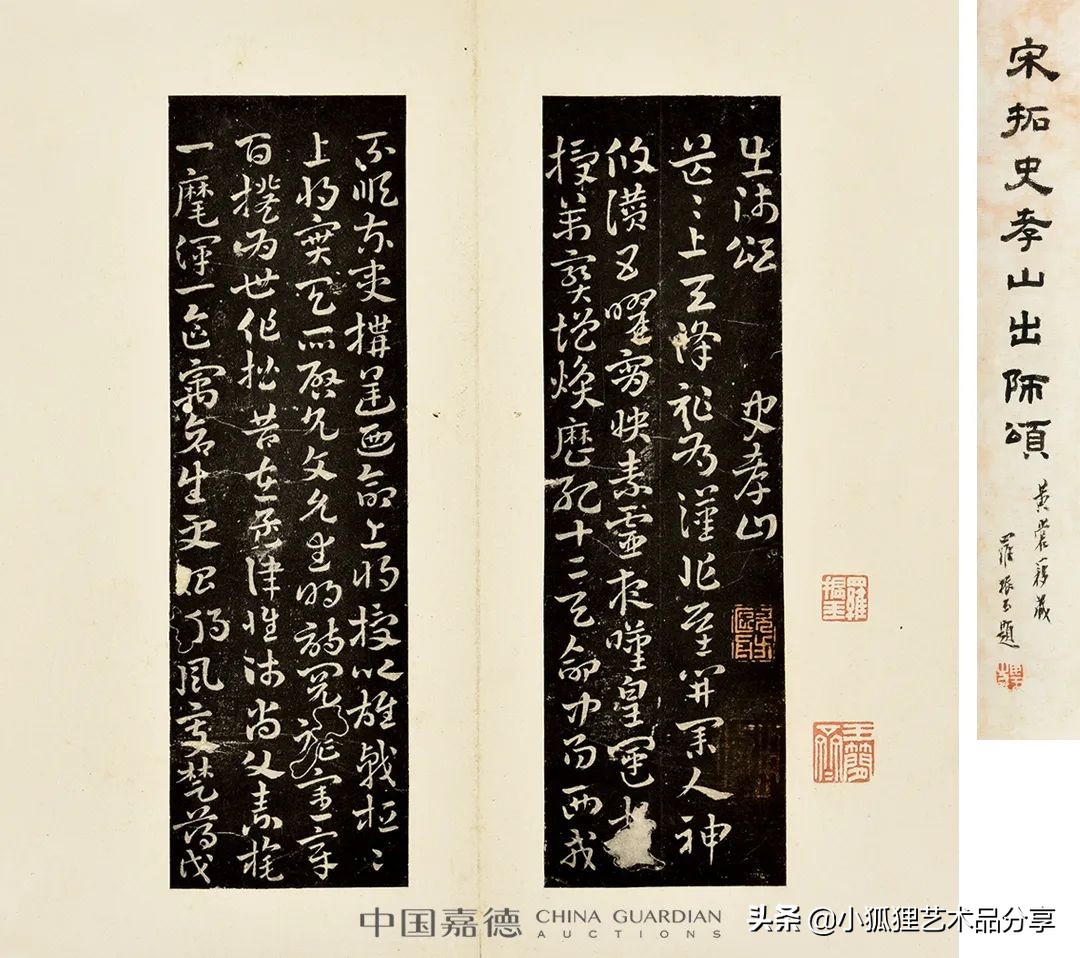 宋拓史孝山出師頌
舊藏
羅振玉題
出師頌 史孝山
茫〻上天降祚為漢作基開業人神
攸讚五曜霄映素靈夜嘆皇運
授萬寶增煥歷紀十二天命中易西戎
不順東夷構逆西命上將授以雄戟桓〻
上將實天所啓允文允武明詩閱禮憲章
百揆為世作楷昔在孟津惟師尚父素旄
一麾渾一區宇蒼生更始朔風變楚薄伐
羅振玉
中国嘉德 CHINA GUARDIAN
AUCTIONS
头条 @小狐狸艺术品分享